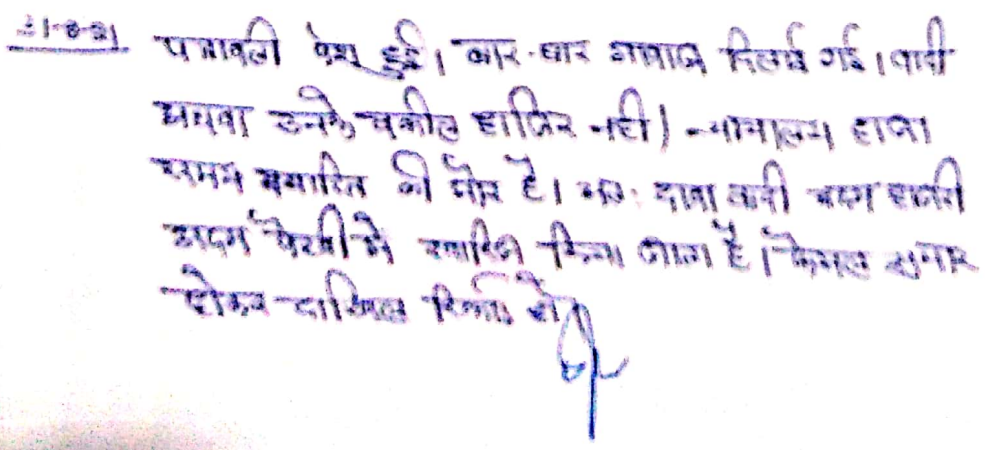 31-8-21 पत्रावली पेश हुई। बार-बार आवाज दिलाई गई। वादी
अथवा उनके वकील हाजिर नहीं। न्यायालय हाजा
समय समाप्ति की ओर है। अतः दावा वादी अदम हाजरी
अदम पैरवी में खारिज किया जाता है। फैसल शुमार
होकर दाखिल रिकॉर्ड हो।